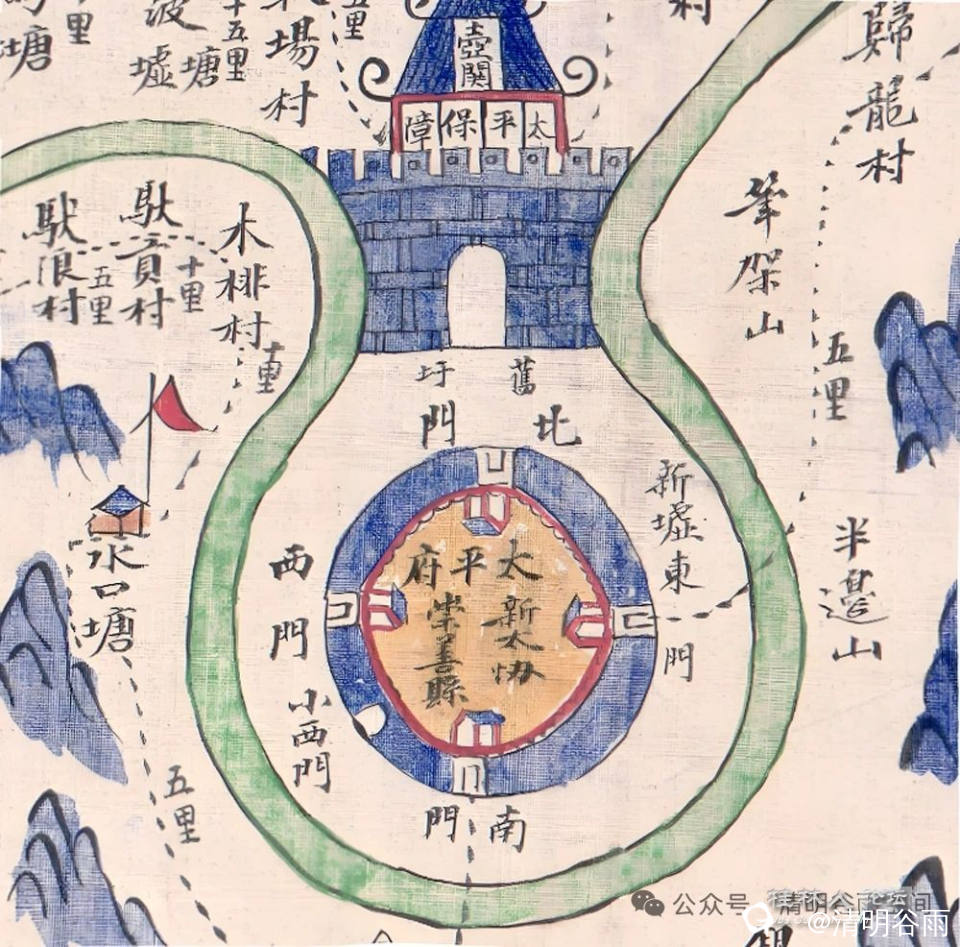 塘
十里
墟塘
十五里
場村
五里
村
壺關
太平保障
歸龍村
筆架山
五里
半邉山
馱浪村
五里
馱貢村
十里
木棑村
十里
舊圩
北門
新墟東門
西門
小西門
南門
太平府
新太協
崇善縣
水口塘
五里
公众号
清明谷雨
间
@清明谷雨